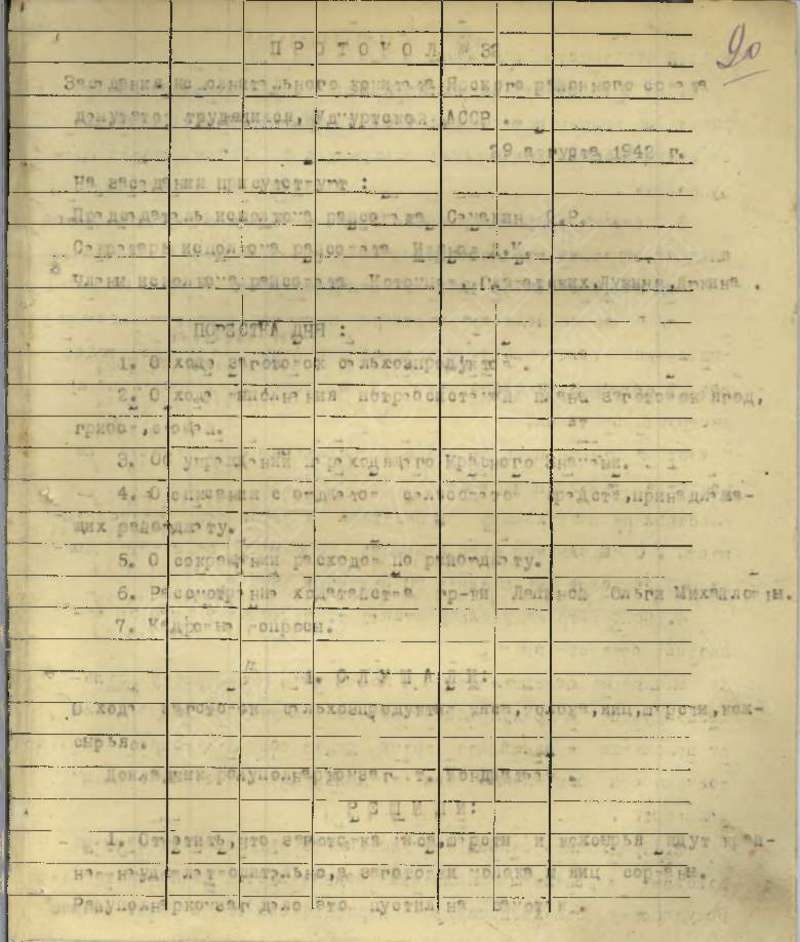 20
ПРОТОКОЛ № 33
Заседания исполнительного комитета Ярского районного совета
депутатов трудящихся, Удмуртской АССР.
29 августа 1942 г.
На заседании присутствуют:
Председатель исполкома райсовета С.Р.
Секретарь исполкома райсовета
Члены исполкома райсовета
ПОВЕСТКА ДНЯ:
1. О ходе заготовок сельхозпродуктов.
2. О ходе выполнения плана заготовок ягод,
грибов,
3. Об учреждении переходящего Красного Знамени.
4. О списании с бюджетов сельсоветов средств, принадлежа-
щих райбюджету.
5. О сокращении расходов по райбюджету.
6. Рассмотрение ходатайства гр-ки Ольги Михайловны.
7. Кадровые вопросы.
1. СЛУШАЛИ:
О ходе заготовок сельхозпродуктов мяса, молока, яиц, шерсти, кож-
сырья.
Докладчик райуполнаркомзаг т.
РЕШИЛИ:
1. Отметить, что заготовка мяса, шерсти и кожсырья идут край-
не неудовлетворительно, а заготовки молока и яиц сорваны.
Райуполнаркомзаг дело это пустил на самотек.